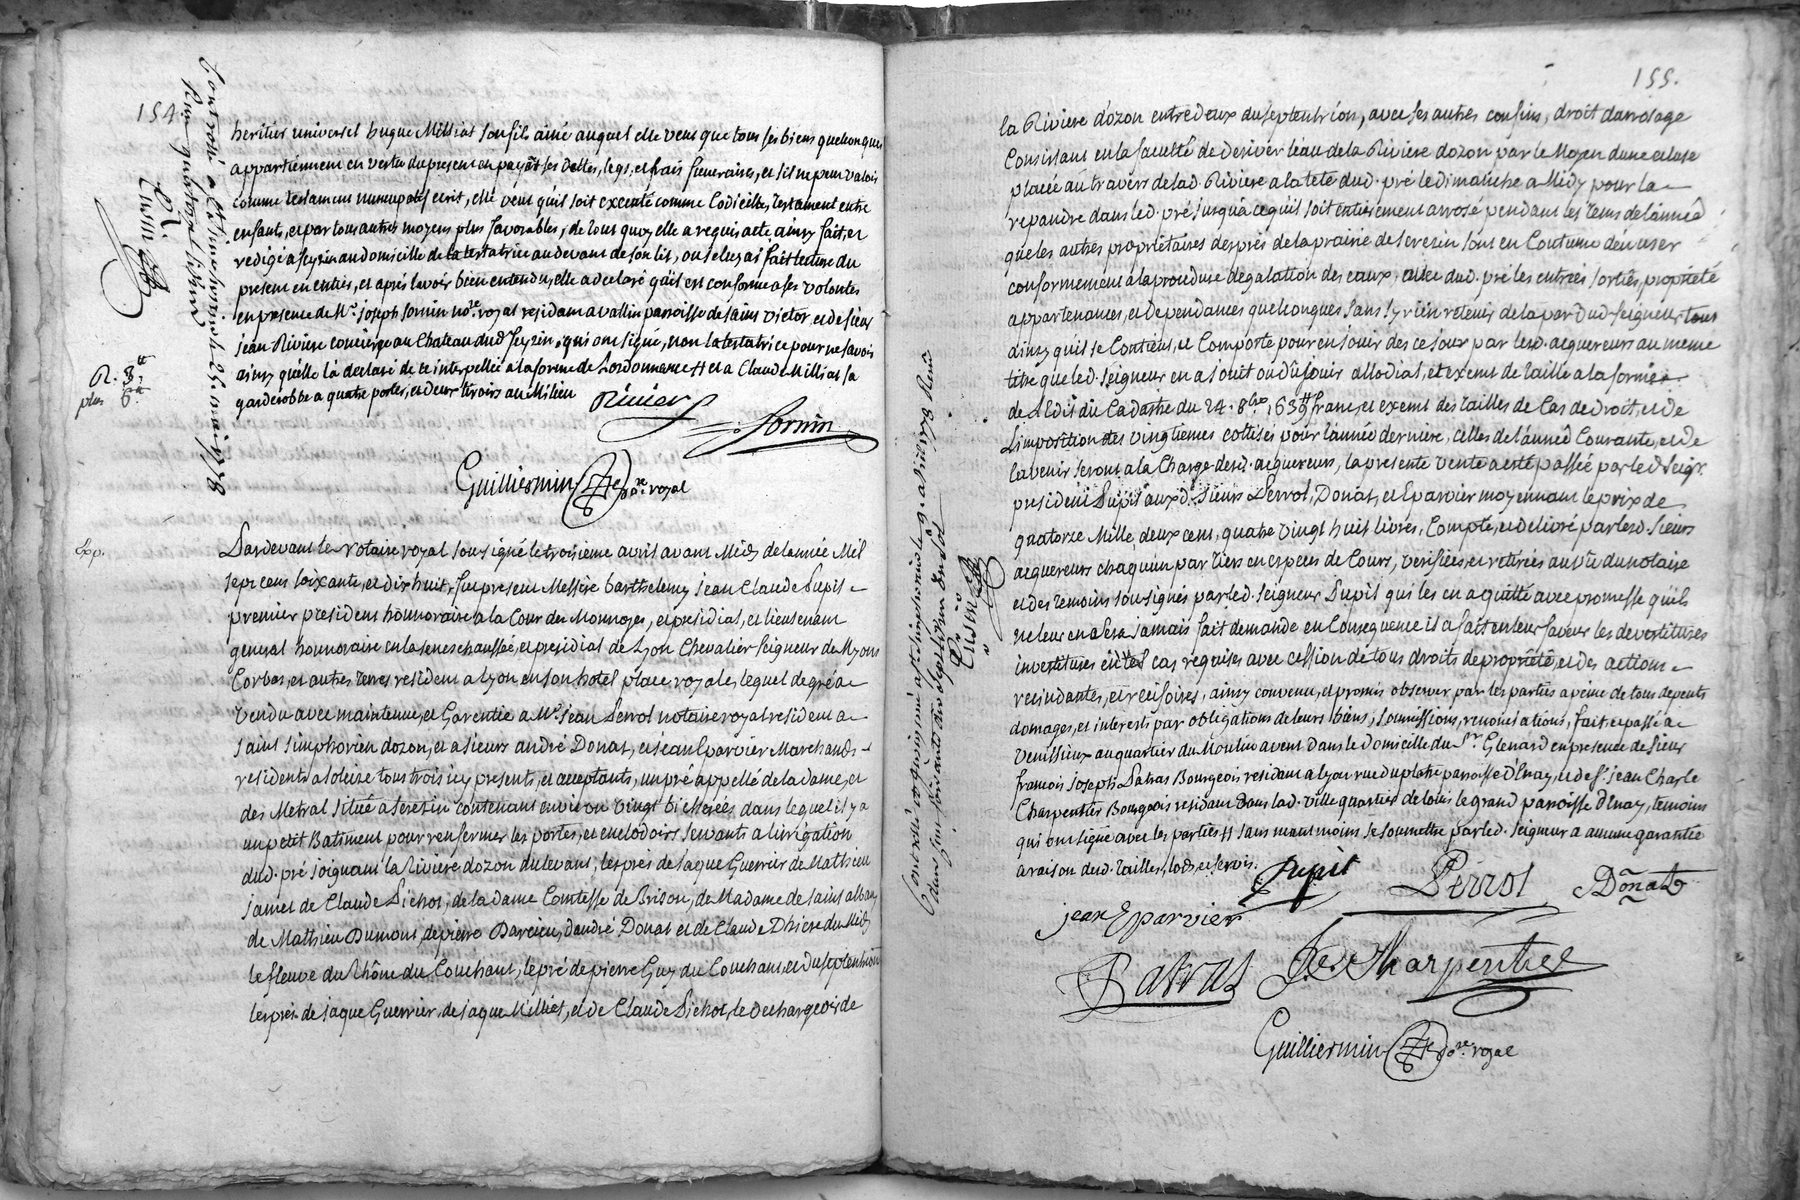 154
heritier universel hugue Milliat son fils ainé auquel elle veut que tous ses biens quelconques
appartiennent en vertu du present en payât ses dettes, legs, et frais funeraires, et s'il ne peut valoir
comme testament nuncupatif ecrit, elle veut qu'il soit executé comme Codicille, testament entre
enfants, et par tous autres moyens plus favorables, de tout quoy elle a requis acte ainsy fait, et
redigé a seyzin au domicille de la testatrice au devant de son lit, ou je luy ai fait lecture du
present en entier, et aprés lavoir bien entendu, elle a declaré qu'il est conforme a ses volontes
en presence de Mr. joseph Sornin nore. royal residant a vallin parroisse de saint victor, et de sieur
jean Riviere concierge au Chateau dud. Seyzin, qui ont signé, non la testatrice pour ne savoir
ainsy qu'elle la declaré de ce interpellée a la forme de Lordonnance H et a Claude Milliat sa
garderobbe a quatre portes, et deux tiroirs au Milieu
Riviere
Sornin
Guilliermin nore. royal
Exp.
Pardevant le Notaire royal soussigné le troisieme avril avant Midy de lannée Mil
sept cens soixante, et dix huit, fut present Messire barthelemy jean Claude Pupil
premier president honnoraire a la Cour des Monnoyes, et presidial, et lieutenant
general honnoraire en la seneschaussée, et presidial de Lyon Chevalier Seigneur de Myons
Corbas, et autres terres resident a lyon en son hotel place royale, lequel de gré a
vendu avec maintenue, et Garentie a Me. jean Perrol notaire royal resident a
saint simphorien dozon, et a sieurs andré Donat, et jean Eparvier Marchands
residents a soleize tous trois icy presents, et acceptants, un pré appellé de la dame, et
des Metral situé a serezin contenant environ vingt bicherées dans lequel il y a
un petit Batiment pour renfermer les portes, et enclodoirs servants a lirrigation
dud. pré joignant la Riviere dozon du levant, les prés de jaque Guerrier de Mathieu
james de Claude Pichot, de la dame Comtesse de Brison, de Madame de saint alban
de Mathieu Dumont, de pierre Parcieu, dandré Donat et de Claude Dhiere du Midy
le fleuve du Rhône du Couchant, le pré de pierre Guy du Couchant, et du septentrion
les prés de jaque Guerrier, de jaque Milliet, et de Claude Pichot, le dechargeoir de
155.
la Riviere d'ozon entredeux du septentrion, avec ses autres confins, droit darrosage
Consistant en la faculté de deriver leau de la Riviere dozon par le Moyen dune ecluse
placée au travers de lad. Riviere a la tête dud. pré le dimanche a Midy pour la
repandre dans led. pré jusqu'a ce qu'il soit entierement arrosé pendant les tems de lannée
que les autres propriétaires des prés de la prairie de serezin sont en Coutume d'en user
conformement a la procedure degalation des eaux, avec dud. pré les entrées sorties, propriété
appartenances, et dependances quelconques sans sy rien retenir de la part dud. Seigneur, tout
ainsy quil se Contient, et Comporte pour en jouir des ce jour par lesd. acquereurs au meme
titre que led. seigneur en a jouit ou dû jouir allodial, et exemt de taille a la forme
de l'Edit du Cadastre du 24. 8bre. 1639 H franc, et exemt des tailles de Cas de droit, et de
Limposition des vingtiemes cottisés pour lannée derniere, celles de lannée Courante, et de
lavenir seront a la Charge desd. acquereurs, la presente vente a esté passée par led. Seigr.
president Pupil auxd. sieurs Perrol, Donat, et Eparvier moyennant le prix de
quatorze Mille, deux cens, quatre vingt huit livres, Compté, et delivré par lesd. sieurs
acquereurs chaquun par tiers en especes de Cours, verifiées, et retirées au vû du notaire
et des temoins soussignés par led. seigneur Pupil qui les en a quitté avec promesse qu'il
ne leur en a sera jamais fait demande en Consequence il a fait en leur faveur les devestitures
investitures en tel cas requises avec cession de tous droits de propriété, et des actions
rescindantes, et rescisoires, ainsy convenu, et promis observer par les parties a peine de tous depents
domages, et interests par obligations de leurs biens, soumissions, renonciations, fait, et passé a
Venissieux au quartier du Moulin avent dans le domicille du Sr. Glenard en presence de sieur
francois joseph Patras Bourgeois resident a lyon rue du platre paroisse d'Enay, et de Sr. jean Charle
Charpentier Bourgeois residant dans lad. ville quartier de louis le grand paroisse d'Enay, temoins
qui ont signé avec les parties H sans neant moins se soumettre par led. seigneur a aucune garantie
a raison desd. tailles, lods, et servis.
Pupil
Perrol
Donat
jean Eparvier
Patras
Charpentier
Guilliermin nore. royal